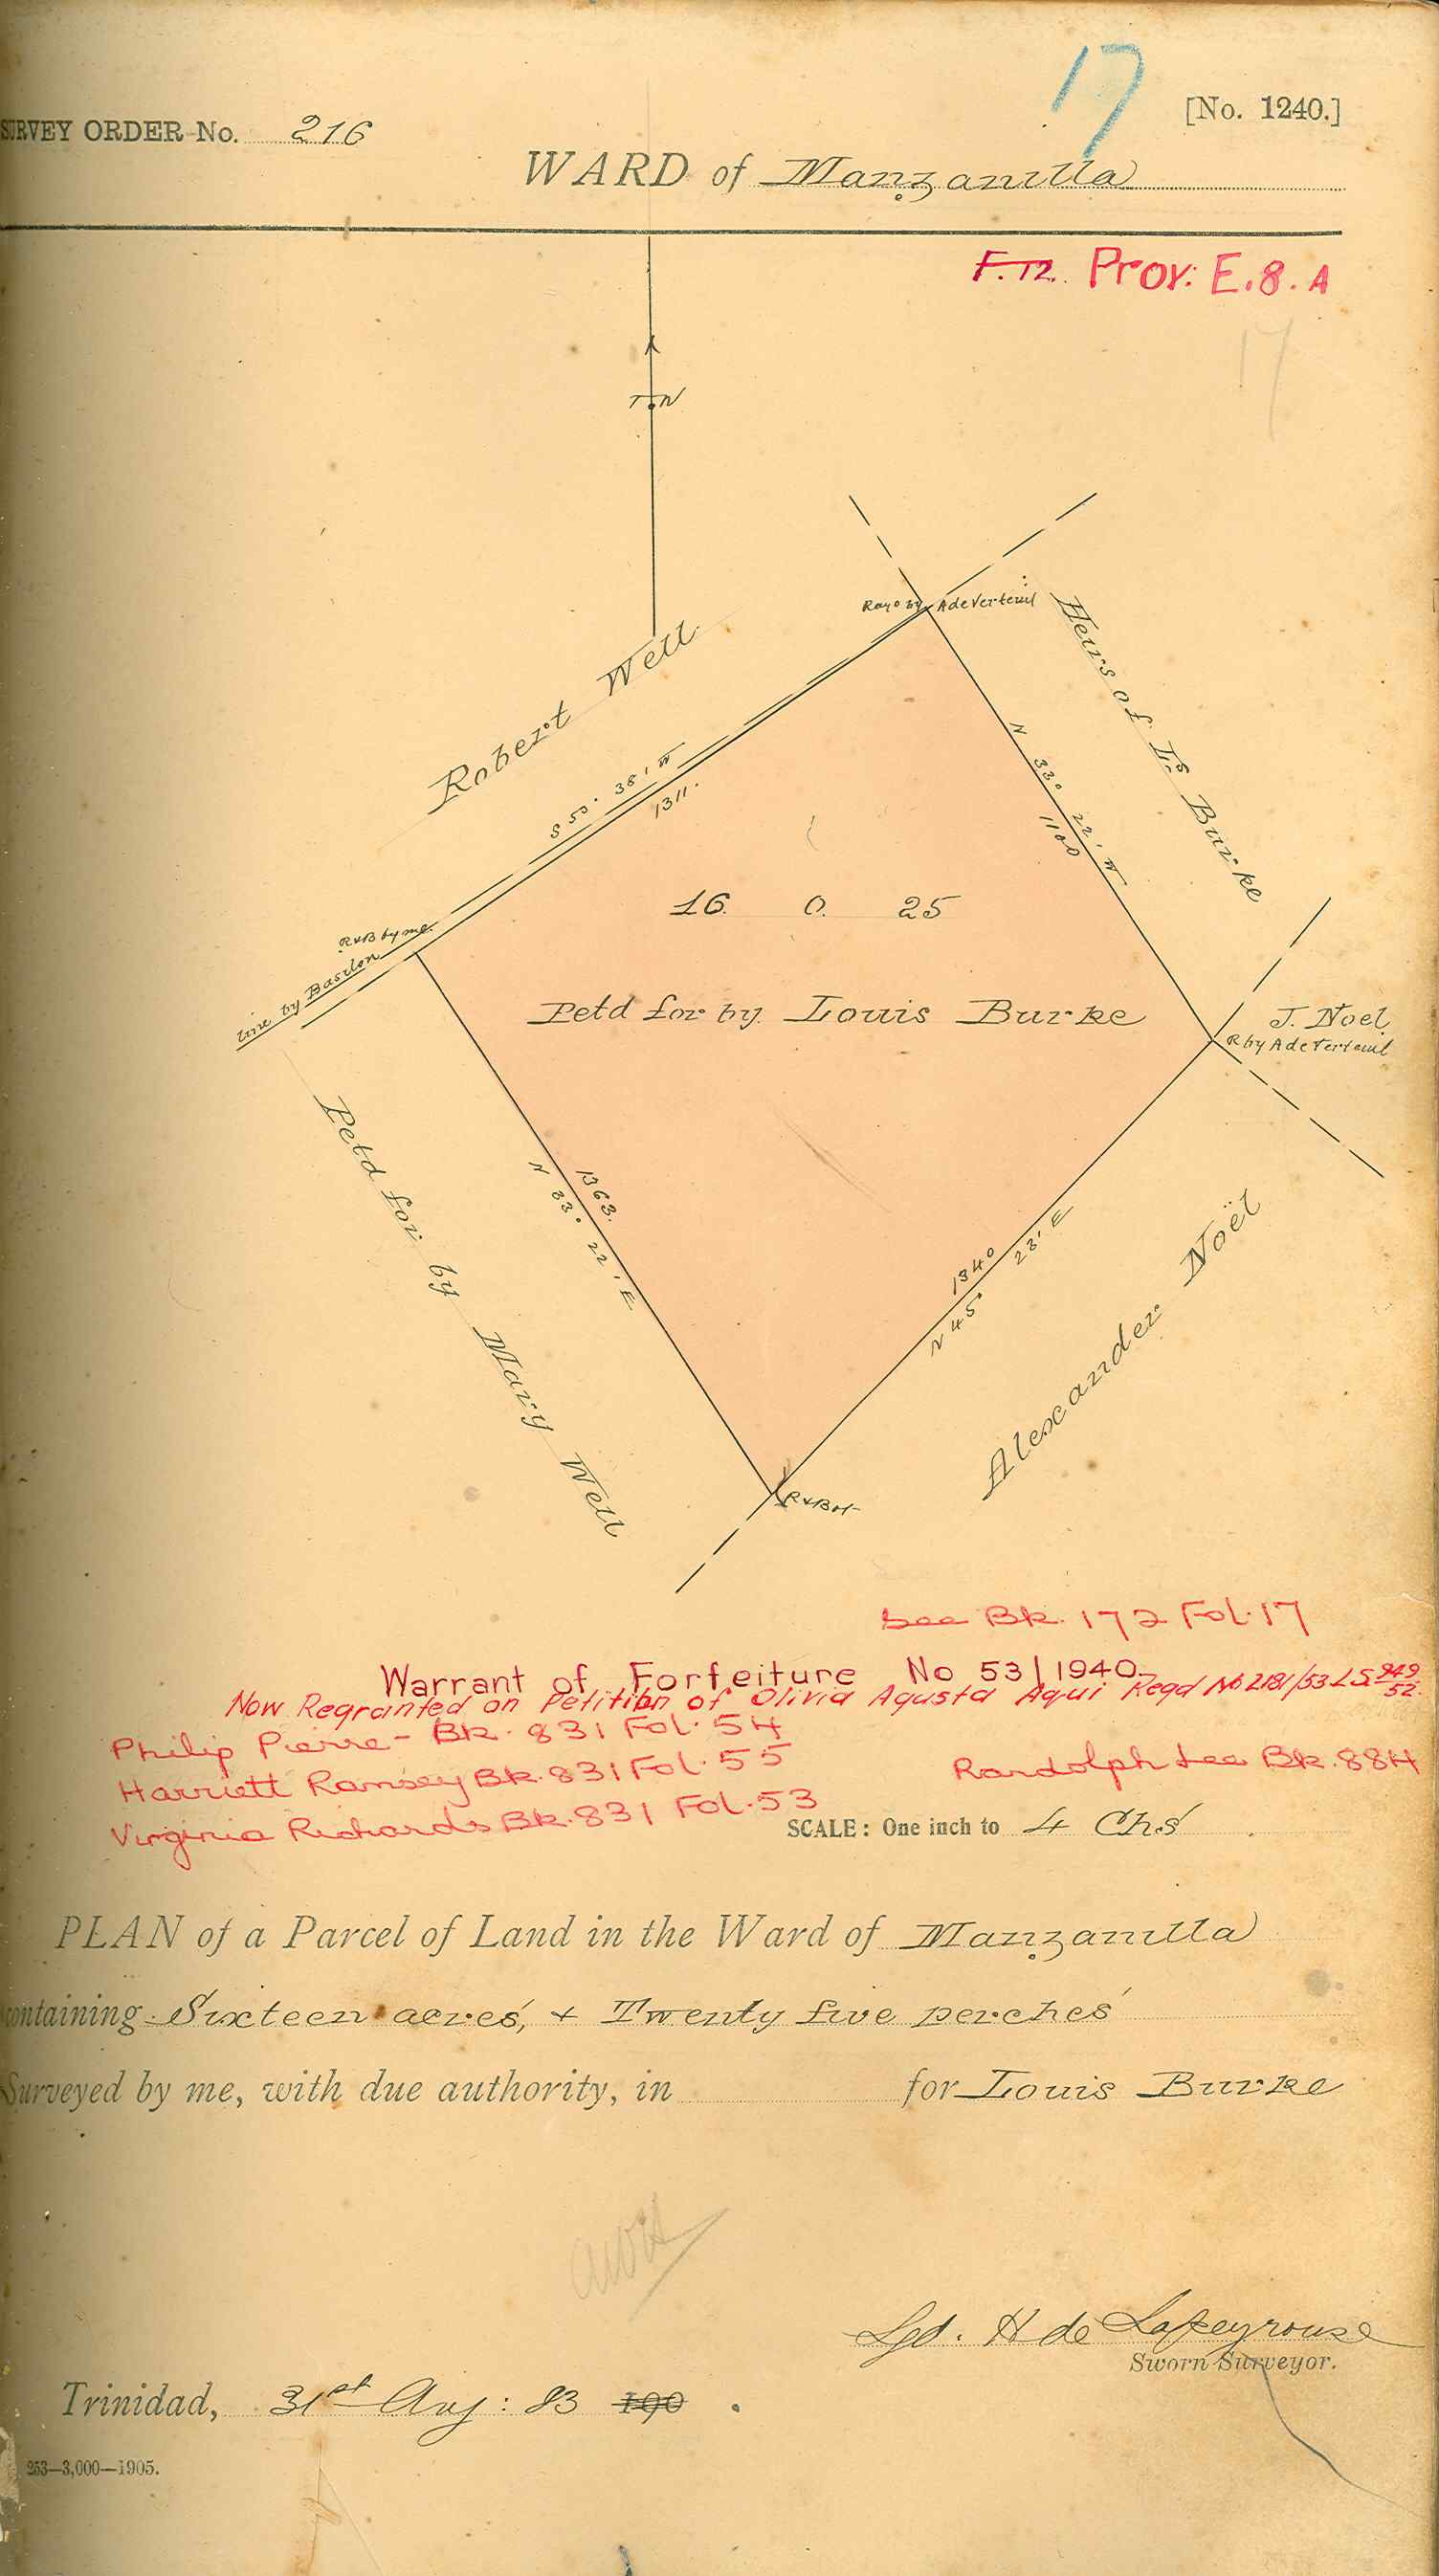 17
SURVEY ORDER No. 216
[No. 1240.]
WARD of Manzanilla
F. 12. Prov: E. 8. A
17
T N
Rayo by A de Verteuil
Heirs of Ls Burke
Robert Well
S 55° 38' W
1311.
N 33° 22' W
1100
16. 0. 25
R & B by me
Line by Basilon
Petd for by Louis Burke
J. Noel
R by A de Verteuil
Petd for by Mary Well
1363.
N 33° 22' E
1340
N 45° 23' E
Alexander Noël
See Bk. 172 Fol. 17
Warrant of Forfeiture No 53/1940
Now Regranted on Petition of Olivia Agusta Aqui Regd No 2181/53 L.S. 949/52.
Philip Pierre - Bk. 831 Fol. 54
Harriett Ramsey Bk. 831 Fol. 55
Randolph Lee Bk. 884
Virginia Richards Bk. 831 Fol. 53
SCALE: One inch to 4 Chs
PLAN of a Parcel of Land in the Ward of Manzanilla
containing Sixteen acres, & Twenty five perches
Surveyed by me, with due authority, in for Louis Burke
Sgd. H de Lapeyrouse
Sworn Surveyor.
Trinidad, 31st Aug: 83 190
253—3,000—1905.